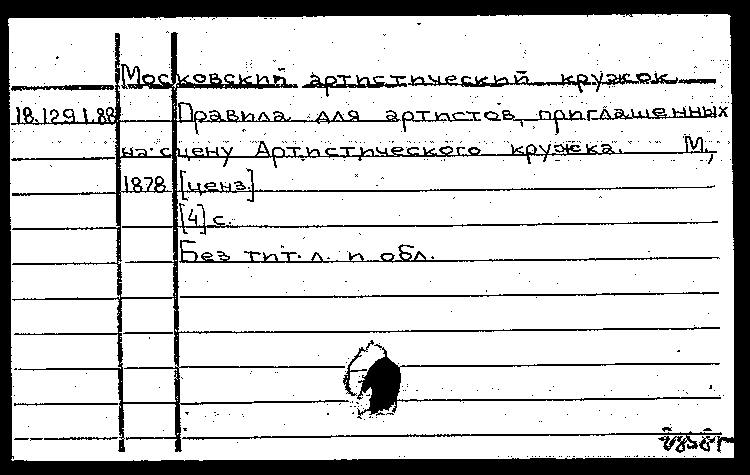 Московский артистический кружок
18.129.1.88 Правила для артистов, приглашенных
на сцену Артистического кружка. М.,
1878 [ценз.]
[4] с.
Без тит. л. и обл.